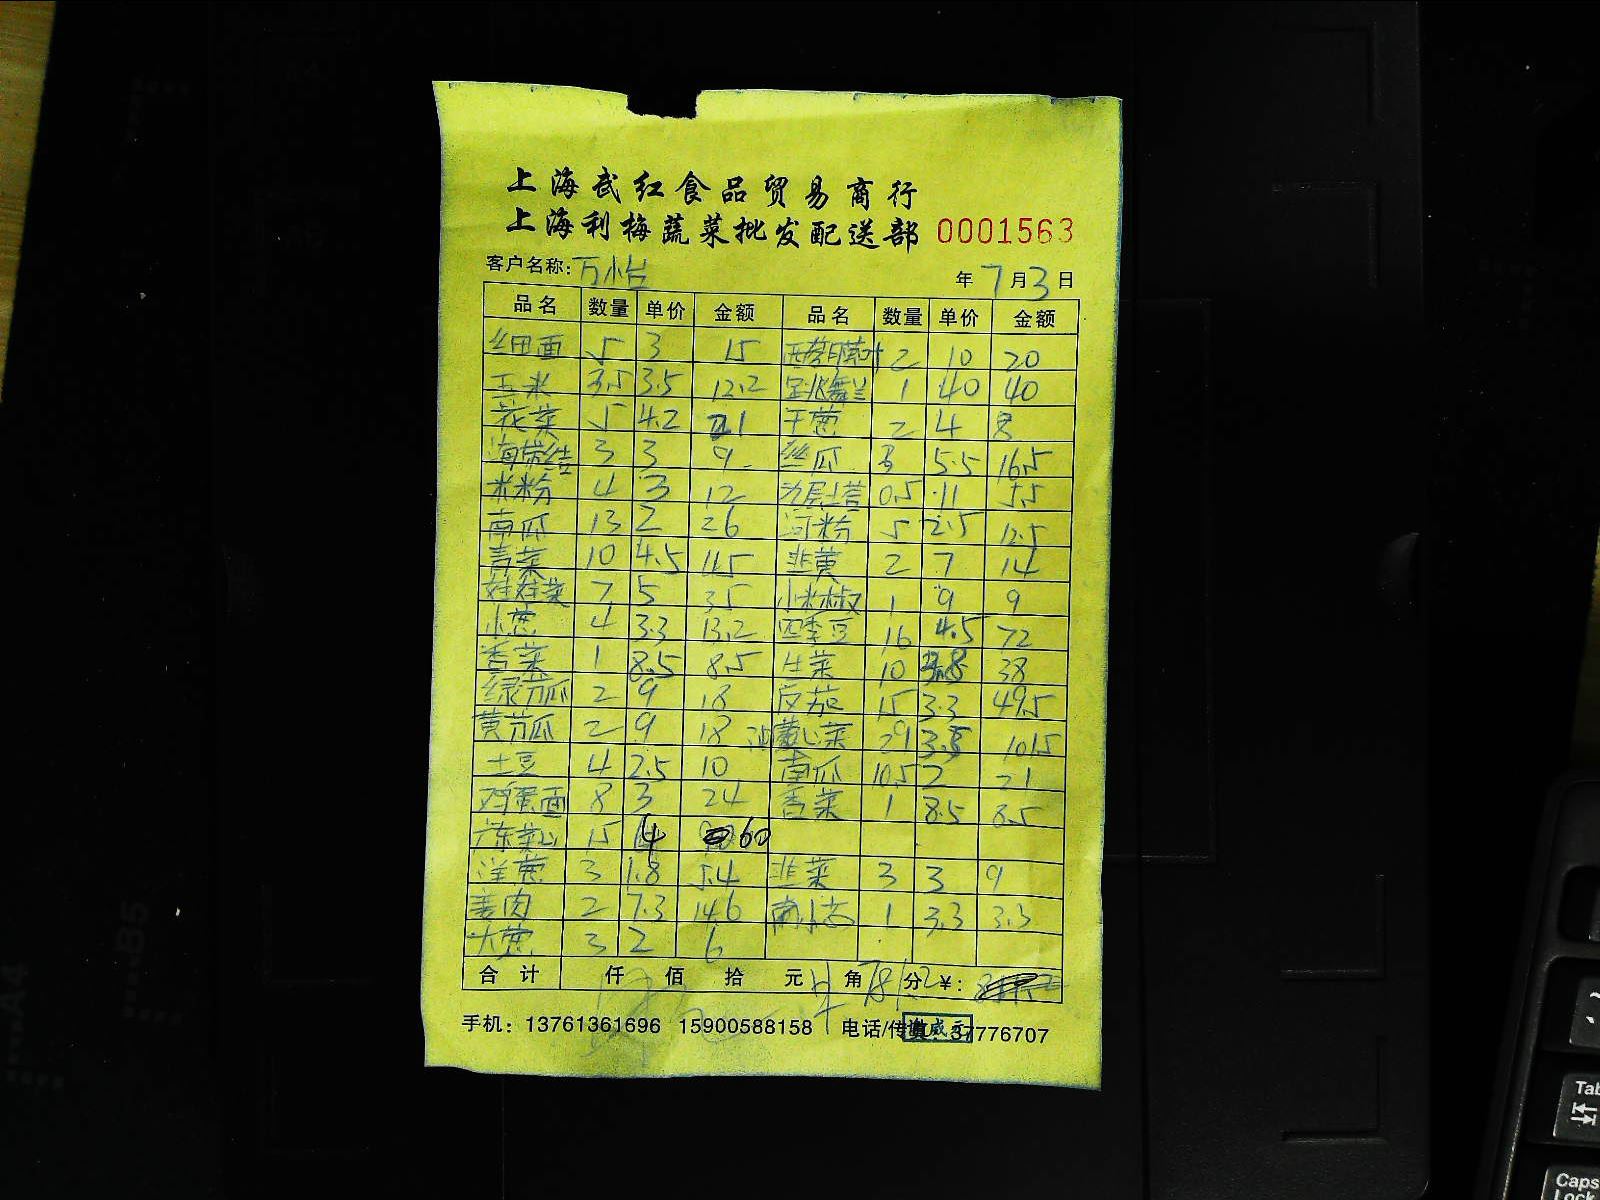 上海武红食品贸易商行
上海利梅蔬菜批发配送部 0001563
客户名称: 万怡 年 7 月 3 日
品名 数量 单价 金额 品名 数量 单价 金额
细面 5 3 15 2 10 20
玉米 3.5 3.5 12.2 1 40 40
花菜 5 4.2 21 干葱 2 4 8
海带结 3 3 9 丝瓜 3 5.5 16.5
米粉 4 3 12 九层塔 0.5 11 5.5
南瓜 13 2 26 河粉 5 2.5 12.5
青菜 10 4.5 韭黄 2 7 14
娃娃菜 7 5 35 小米椒 1 9 9
小葱 4 3.3 13.2 四季豆 16 4.5 72
香菜 1 8.5 8.5 生菜 10 3.8 38
绿节瓜 2 9 18 茄 15 3.3 49.5
黄节瓜 2 9 18 菜 29 3.5 101.5
土豆 4 2.5 10 南瓜 10.5 2 21
鸡蛋面 8 3 24 香菜 1 8.5 8.5
15 4 60
洋葱 3 1.8 5.4 韭菜 3 3 9
姜肉 2 7.3 14.6 1 3.3 3.3
大葱 3 2 6
合计 仟 佰 拾 元 角 分 ¥:
手机: 13761361696 15900588158 电话/传真: 37776707